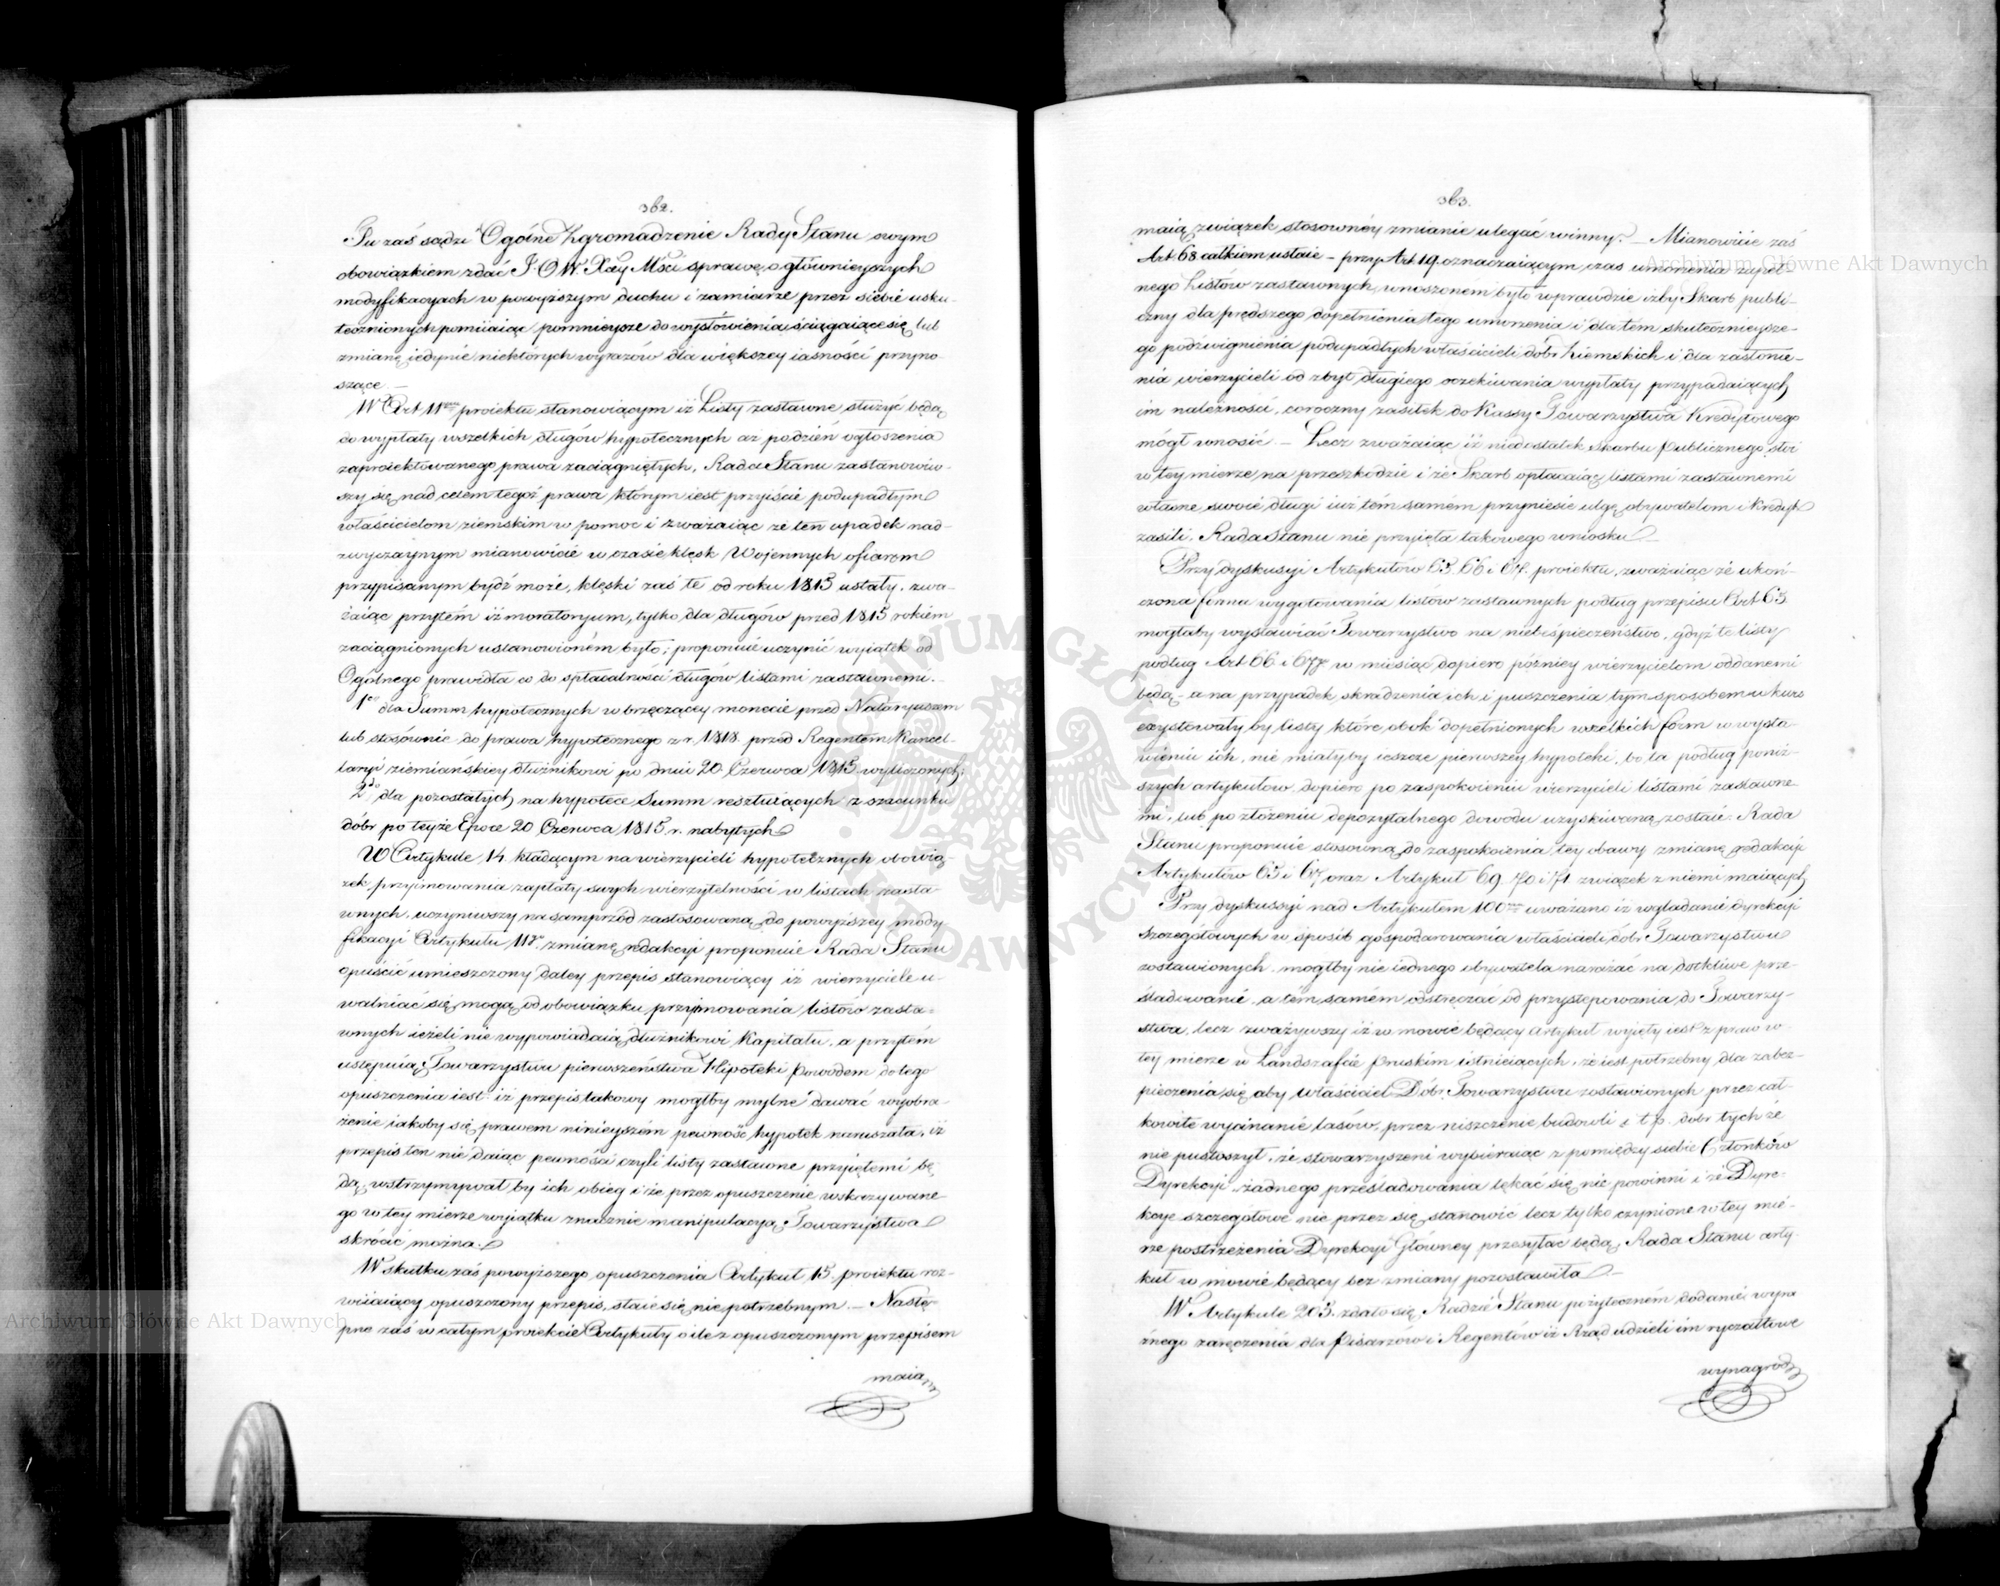 362.
Tu zaś sądzi Ogólne Zgromadzenie Rady Stanu swym
obowiązkiem zdać J. O. W. Xcey Mści sprawę, o głównieyszych
modyfikacyach w powyższym duchu i zamiarze przez siebie usku-
tecznionych pomiiaiąc pomnieysze do wysłowienia ściągaiące się lub
zmianę iedynie niektórych wyrazów dla większey iasności przyno-
szące. —
W Art 11ym proiektu stanowiącym iż Listy zastawne służyć będą
do wypłaty wszelkich długów hypotecznych aż po dzień ogłoszenia
zaproiektowanego prawa zaciągniętych, Rada Stanu zastanowiw-
szy się nad celem tegoż prawa którym iest przyiście podupadłym
właścicielom ziemskim w pomoc i zważaiąc że ten upadek nad-
zwyczaynym mianowicie w czasie klęsk Woiennych ofiarom
przypisanym bydź może, klęski zaś te od roku 1815 ustały, zwa-
żaiąc przytém iż moratoryum, tylko dla długów przed 1815 rokiem
zaciągnionych ustanowioném było; proponuie uczynić wyiątek od
Ogólnego prawidła co do spłacalności długów listami zastawnemi. —
1o dla Summ hypotecznych w brzęczącey monecie przed Notaryuszem
lub stosównie do prawa hypotecznego z r. 1818. przed Regentem Kancel-
laryi ziemiańskiey dłużnikowi po dniu 20 Czerwca 1815. wyliczonych;
2do dla pozostałych na hypotece Summ resztuiących z szacunku
dóbr po teyże Epoce 20 Czerwca 1815. r. nabytych
W Artykule 14. kładącym na wierzycieli hypotecznych obowią-
zek, przyimowania zapłaty swych wierzytelności w listach zasta-
wnych, uczyniwszy na samprzód zastosowaną do powyższey mody-
fikacyi Artykułu 11go zmianę redakcyi proponuie Rada Stanu
opuścić umieszczony daley przepis stanowiący iż wierzyciele u-
walniać się mogą od obowiązku przyimowania listów zasta-
wnych ieżeli nie wypowiadaią dłużnikowi Kapitału, a przytém
ustępuią Towarzystwu pierwszeństwa Hipoteki Powodem do tego
opuszczenia iest: iż przepis takowy mogłby mylne dawać wyobra-
żenie iakoby się prawem ninieyszém pewność hypotek naruszała, iż
przepis ten nie daiąc pewności czyli listy zastawne przyiętemi bę-
dą, wstrzymywał by ich obieg i że przez opuszczenie wskazywane-
go w tey mierze wyiątku znacznie manipulacya Towarzystwa
skrócić można.
W skutku zaś powyższego, opuszczenia Artykuł 15. proiektu roz-
wiiaiący opuszczony przepis, staie się nie potrzebnym. — Nastę-
pne zaś w całym proiekcie Artykuły o ile z opuszczonym przepisem
maią
363.
maią związek stosownéy zmianie ulegać winny. — Mianowicie zaś
Art. 68 całkiem ustaie – przy Art 19. oznaczaiącym czas umorzenia zupeł-
nego Listów zastawnych, wnoszonem było wprawdzie iżby Skarb publi-
czny dla prędszego dopełnienia tego umorzenia i dla tém skutecznieysze-
go podzwignienia podupadłych właścicieli dóbr Ziemskich i dla zasłonie-
nia wierzycieli od zbyt długiego oczekiwania wypłaty przypadaiących
im należności, coroczny zasiłek do Kassy Towarzystwa Kredytowego
mógł wnosić. — Lecz zważaiąc iż niedostatek Skarbu Publicznego stoi
w tey mierze na przeszkodzie i że Skarb opłacaiąc listami zastawnemi
własne swoie długi iuż tém samém przyniesie ulgę obywatelom i Kredyt
zasili, Rada Stanu nie przyięła takowego wniosku —
Przy dyskusyi Artykułów 63. 66 i 67. proiektu, zważaiąc że ukoń-
czona forma wygotowania listów zastawnych podług przepisu Art 63
mogłaby wystawiać Towarzystwo na niebespieczeństwo, gdyż te listy
podług Art 66 i 67 w miesiąc dopiero poźniey wierzycielom oddanemi
będą – a na przypadek skradzenia ich i puszczenia tym sposobem w kurs
exystowały by listy które obok dopełnionych wszelkich form w wysta-
wieniu ich, nie miałyby ieszcze pierwszey hypoteki, bo ta podług poniż-
szych artykułów, dopiero po zaspokoieniu wierzycieli listami zastawne-
mi, lub po złożeniu depozytalnego dowodu uzyskiwaną zostaie. Rada
Stanu proponuie stosowną do zaspokoienia tey obawy zmianę redakcyi
Artykułów 63 i 67, oraz Artykuł 69. 70 i 71. związek z niemi maiących
Przy dyskussyi nad Artykułem 100ym uważano iż wglądanie dyrekcyi
szczegółowych w sposób gospodarowania właścicieli dóbr Towarzystwu
zostawionych, mogłby nie iednego obywatela narażać na dotkliwe prze-
śladowanie, a tém samém odstręczać od przystępowania do Towarzy-
stwa, lecz zważywszy iż w mowie będący artykuł wyięty iest z praw w
tey mierze w Landszafcie Pruskim istnieiących, że iest potrzebny dla zabez-
pieczenia się aby właściciel Dóbr Towarzystwu zostawionych przez cał-
kowite wycinanie lasów, przez niszczenie budowli i t. p. dóbr tych że
nie pustoszył, że stowarzyszeni wybieraiąc z pomiędzy siebie Członków
Dyrekcyi, żadnego prześladowania lękać się nie powinni i że Dyre-
kcye szczegółowe nie przez się stanowić lecz tylko czynione w tey mie-
rze postrzeżenia Dyrekcyi Główney przesyłać będą, Rada Stanu arty-
kuł w mowie będący bez zmiany pozostawiła —
W Artykule 203. zdało się Radzie Stanu pożyteczném dodanie wyra-
źnego zaręczenia dla Pisarzów i Regentów iż Rząd udzieli im ryczałtowe
wynagrodz
Archiwum Główne Akt Dawnych
Archiwum Główne Akt Dawnych
ARCHIWUM GŁÓWNE AKT DAWNYCH